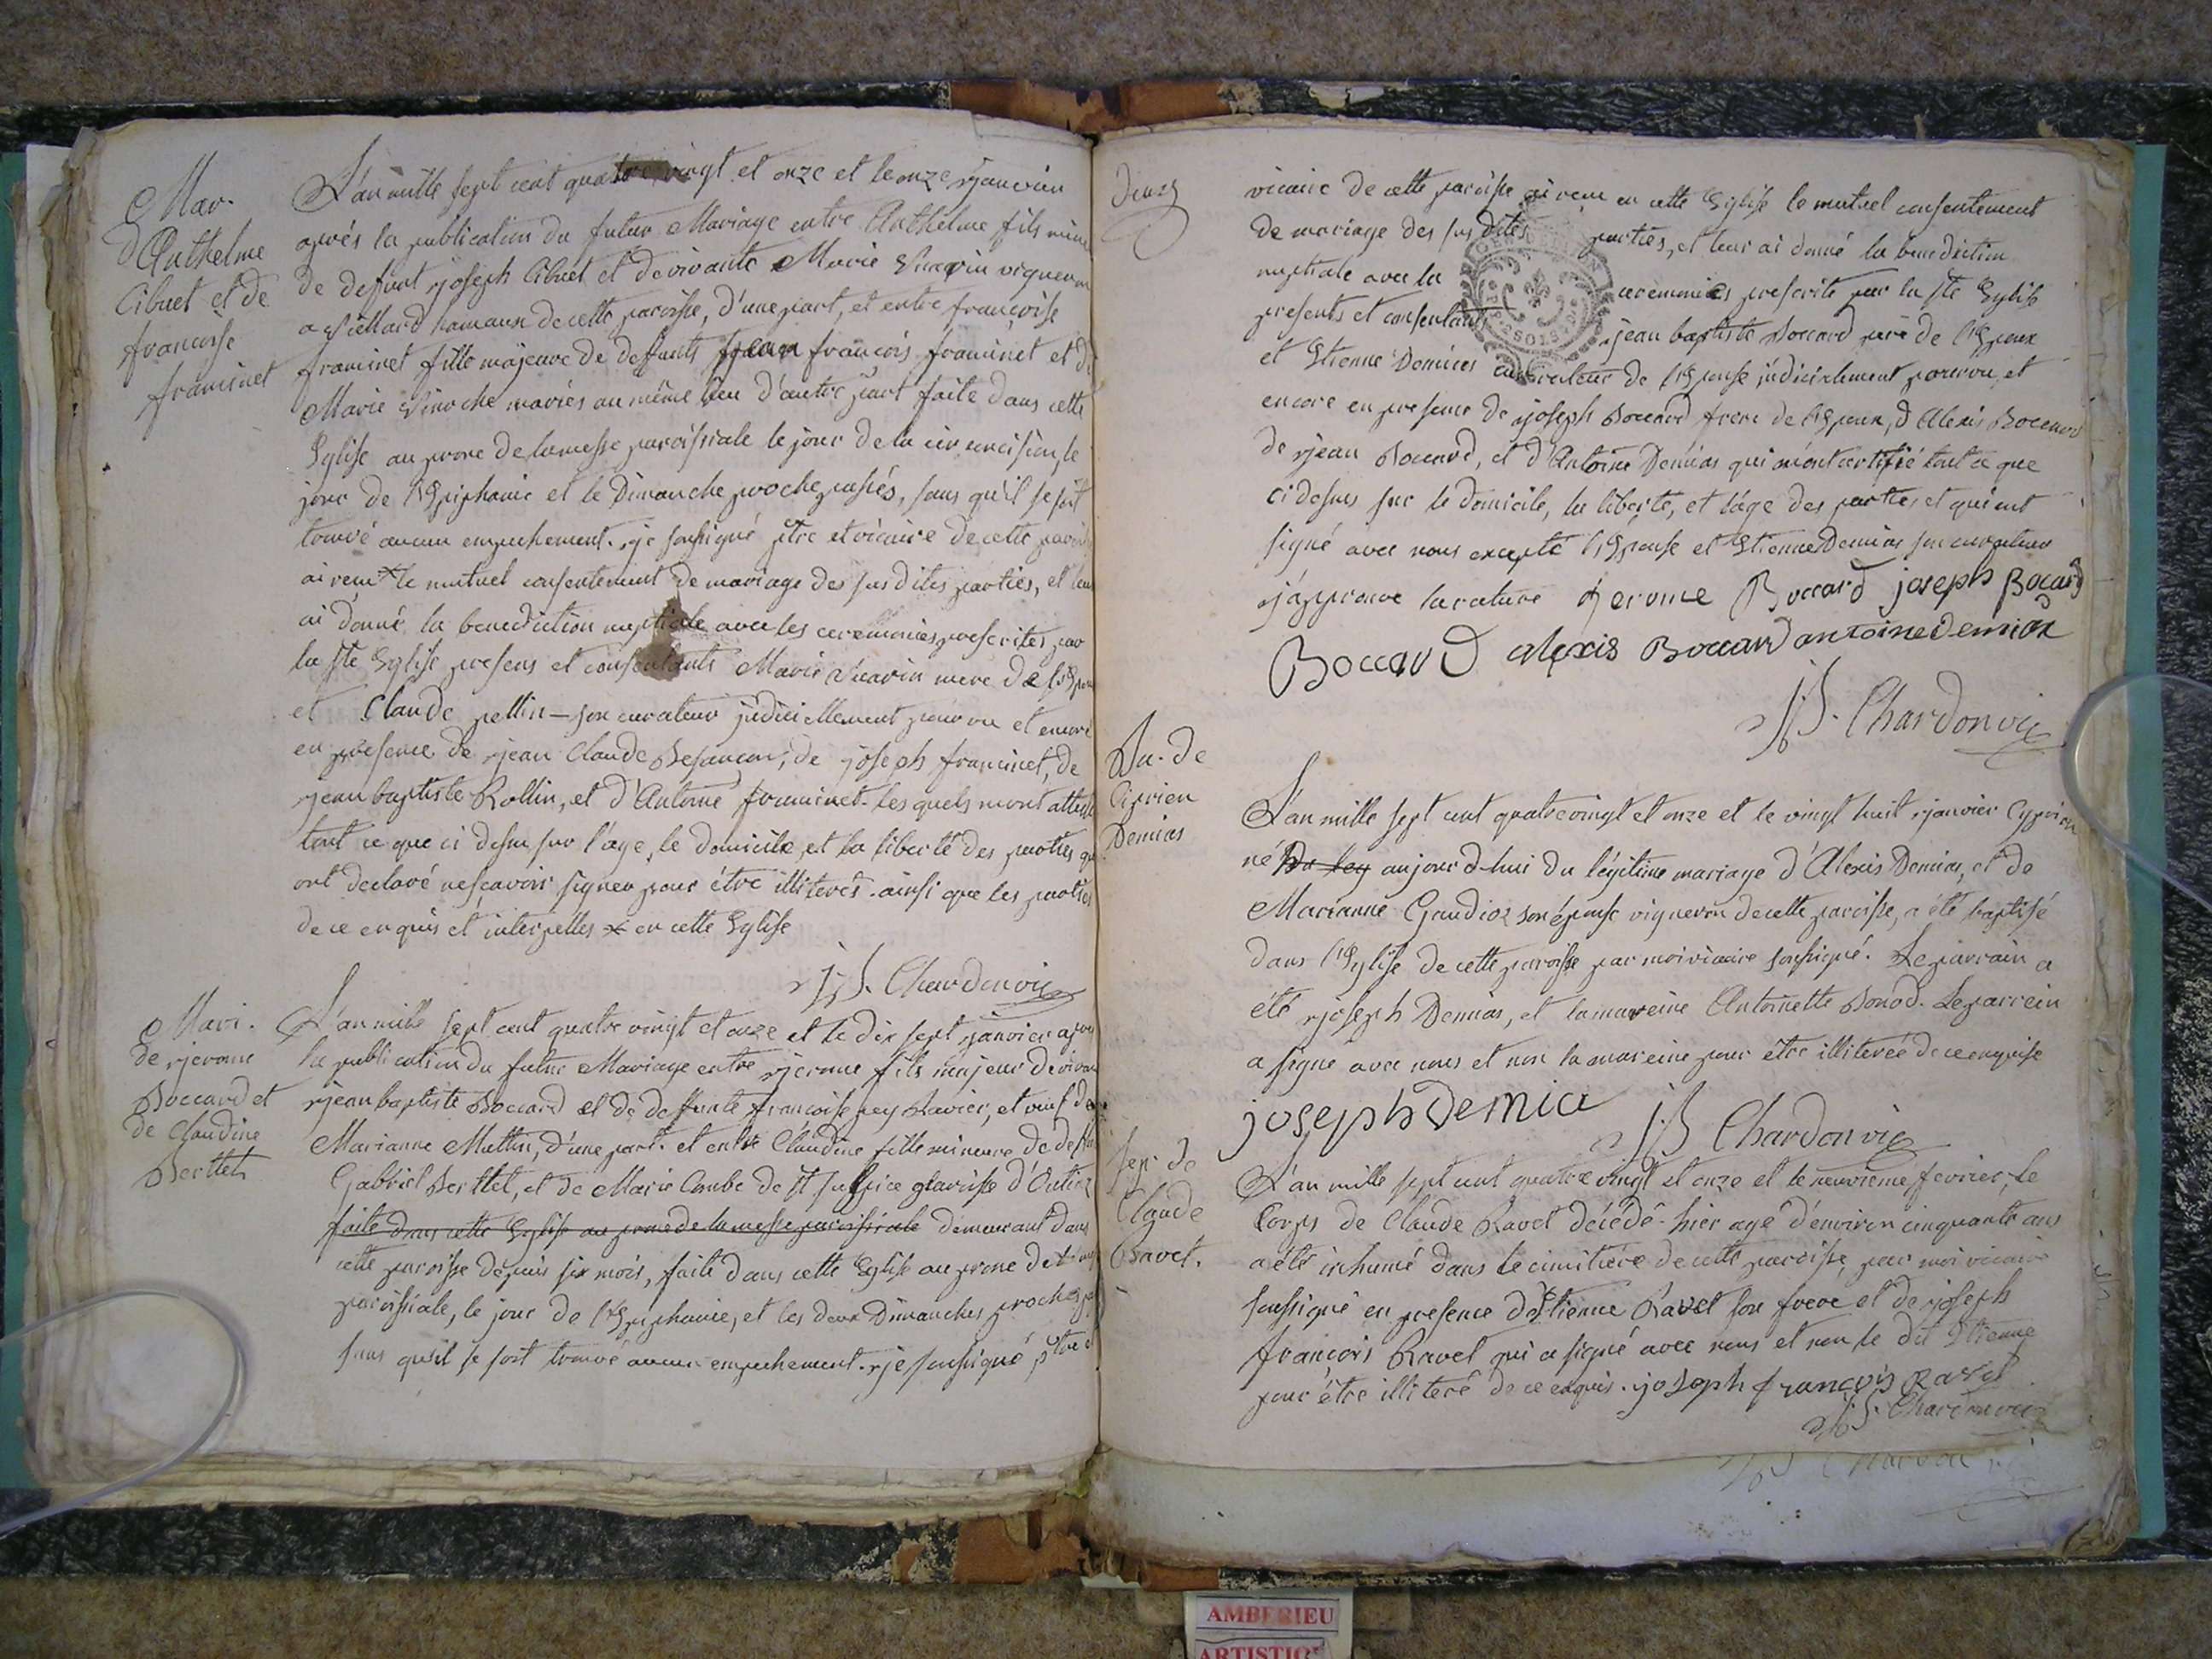 Mar.
d'Anthelme
Cibuet et de
françoise
framinet
L'an mille sept cent quatre vingt et onze et le onze janvier
après la publication du futur Mariage entre Anthelme fils mine
de defunt joseph Cibuet et de vivante Marie vigneron
hamaux de cette paroisse, d'une part, et entre françoise
framinet fille majeure de deffunts françois framinet et de
Marie mariés au même lieu d'autre part faite dans cette
Eglise au prone de la messe paroissiale le jour de la circoncision, le
jour de l'Epiphanie et le Dimanche proche passés, sans qu'il se soit
trouvé aucun empechement. je soussigné ptre et vicaire de cette paroisse
ai reçu * le mutuel consentement de mariage des susdites parties, et leur
ai donné la benediction nuptiale avec les ceremonies prescrites par
la ste Eglise presens et consentants Marie mere de l'Epoux
et Claude pellin - son curateur judiciellement pourvu et encore
en presence de jean Claude Besançon, de joseph framinet, de
jean baptiste Rollin, et d'Antoine framinet. les quels m'ont attesté
tout ce que ci dessus sur l'age, le domicile, et la liberté des parties qui
ont declaré ne sçavoir signer pour être illiterés. ainsi que les parties
de ce enquis et interpelles * en cette Eglise
J B. Chardon vic
Mari.
de jerome
Boccard et
de Claudine
Berthet
L'an mille sept cent quatre vingt et onze et le dix sept janvier après
la publication du futur Mariage entre jerome fils majeur de vivant
jean baptiste Boccard et de deffunte françoise Ravier, et veuf de
Marianne Mettin, d'une part. et entre Claudine fille mineure de deffunt
Gabriel Berthet, et de Marie Combe de st sulpice paroisse
faite dans cette Eglise au prone de la messe paroissiale demeurant dans
cette paroisse depuis six mois, faite dans cette Eglise au prone de la messe
paroissiale, le jour de l'Epiphanie, et les deux Dimanches proche
sans qu'il se soit trouvé aucun empechement. je soussigné ptre et
vicaire de cette paroisse ai reçu en cette Eglise le mutuel consentement
de mariage des susdites parties, et leur ai donné la benediction
nuptiale avec la ceremonies prescrite par la ste Eglise
presents et consentants jean baptiste Boccard pere de l'Epoux
et Etienne Demias curateur de l'Epouse judiciclement pourvu, et
encore en presence de joseph Boccard frere de l'Epoux, d'Alexis Boccard
de jean Boccard, et d'Antoine Demias qui m'ont certifié tout ce que
ci dessus sur le domicile, la liberté, et l'age des parties et qui ont
signé avec nous excepté l'Epouse et Etienne Demias son curateur
j'approuve la rature jerome Boccard joseph Bocard
Boccard alexis Boccard antoine Demias
J B. Chardon vic
Ba. de
Ciprien
Demias
L'an mille sept cent quatre vingt et onze et le vingt huit janvier Cyprien
né du leg aujourd'hui du légitime mariage d'Alexis Demias, et de
Marianne Gaudioz son épouse vigneron de cette paroisse, a été baptisé
dans l'Eglise de cette paroisse par moi vicaire soussigné. Le parrain a
été joseph Demias, et la mareine Antoinette Bonod. Le parrein
a signé avec nous et non la mareine pour être illiterée de ce enquise
joseph Demia J B Chardon vic
Sep. de
Claude
Ravet.
L'an mille sept cent quatre vingt et onze et le neuvieme fevrier, le
Corps de Claude Ravet décédé hier agé d'environ cinquante ans
a été inhumé dans le cimitiere de cette paroisse, par moi vicaire
soussigné en presence d'Etienne Ravet son frere et de joseph
françois Ravet qui a signé avec nous et non le dit Etienne
pour être illiteré de ce enquis. joseph françois Ravet
J B. Chardon vic
AMBERIEU
ARTISTIQUE